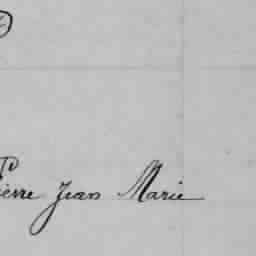 Pierre Jean Marie